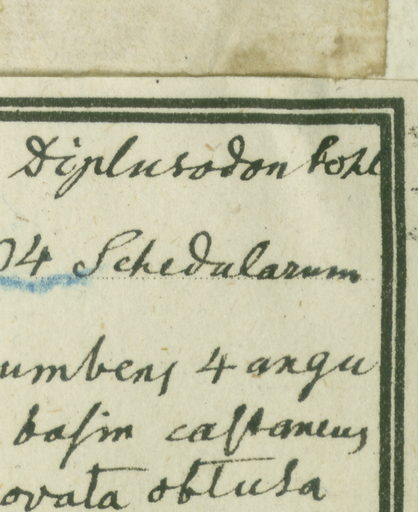 Diplusodon Pohl
04 Schedularum
umbens 4 angu
basin castaneus
ovata obtusa